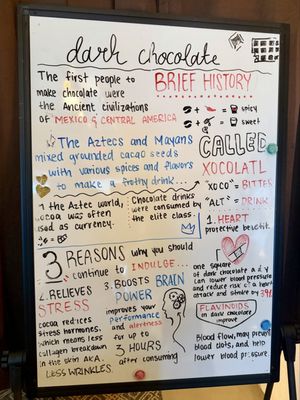 dark chocolate
The first people to
make chocolate were
the Ancient civilizations
of MEXICO & CENTRAL AMERICA
BRIEF HISTORY
+ = spicy
+ = sweet
The Aztecs and Mayans
mixed grounded cacao seeds
with various spices and flavors
to make a frothy drink...
CALLED
XOCOLATL
"XOCO" = BITTER
"ALT" = DRINK
In the Aztec world,
cocoa was often
used as currency.
Chocolate drinks
were consumed by
the elite class.
1. HEART
protective benefit.
3 REASONS why you should
continue to INDULGE...
one square
of dark chocolate a day
can lower blood pressure
and reduce risk of a heart
attack and stroke by 39%
2. RELIEVES
STRESS
cocoa reduces
stress hormones.
which means less
collagen breakdown
in the skin AKA.
LESS WRINKLES.
3. BOOSTS BRAIN
POWER
improves your
performance
and alertness
for up to
3 HOURS
after consuming
FLAVINOIDS
in dark chocolate
improve
Blood flow, may prevent
blood clots, and help
lower blood pressure.